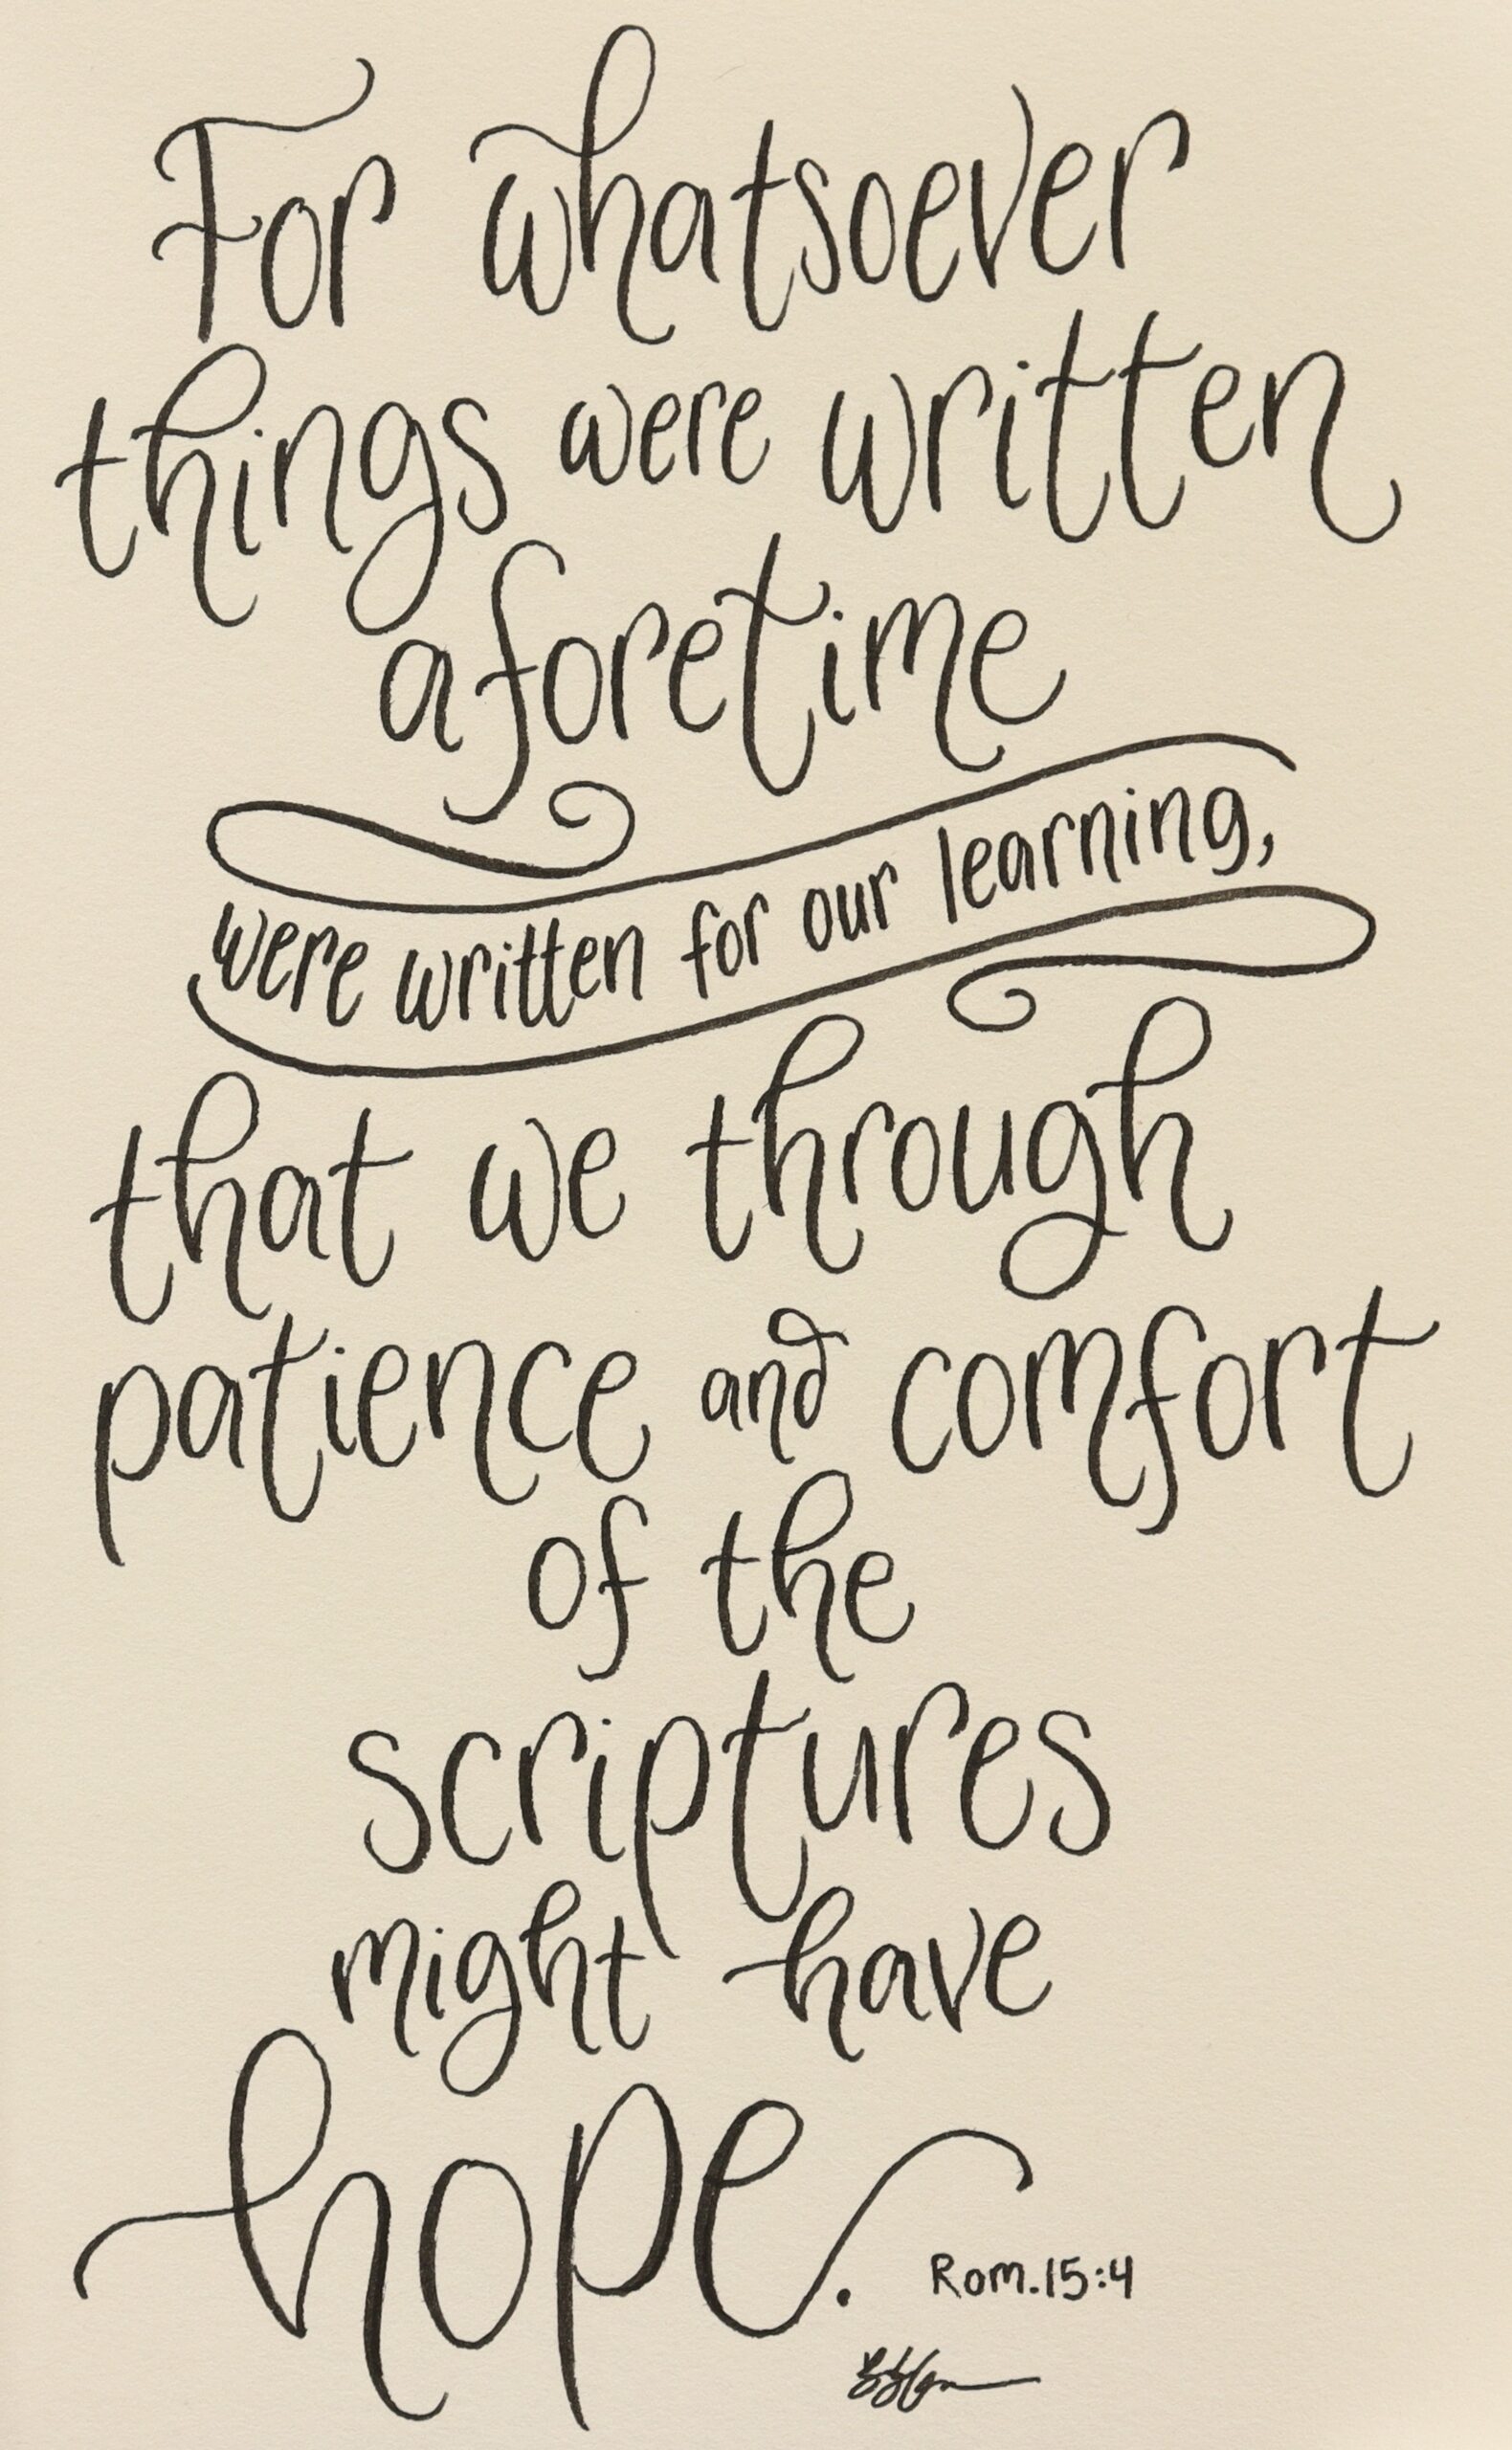 For whatsoever
things were written
aforetime
were written for our learning,
that we through
patience and comfort
of the
scriptures
might have
hope.
Rom.15:4